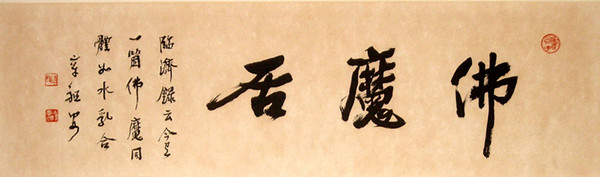 佛魔居
臨濟錄云今有
一箇佛魔同
體如水乳合